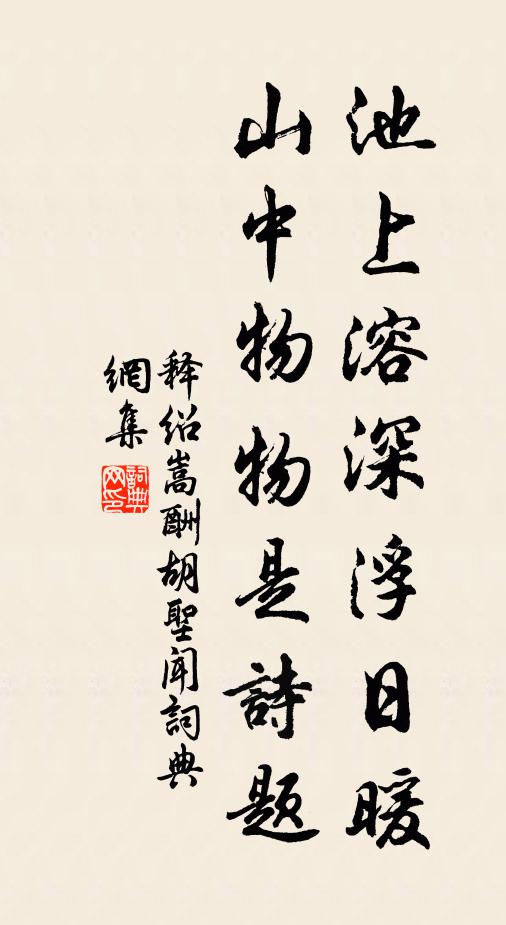 池上溶深浮日暖
山中物物是詩题
释绍嵩酬胡聖闻詞典
網集
詞典
网印